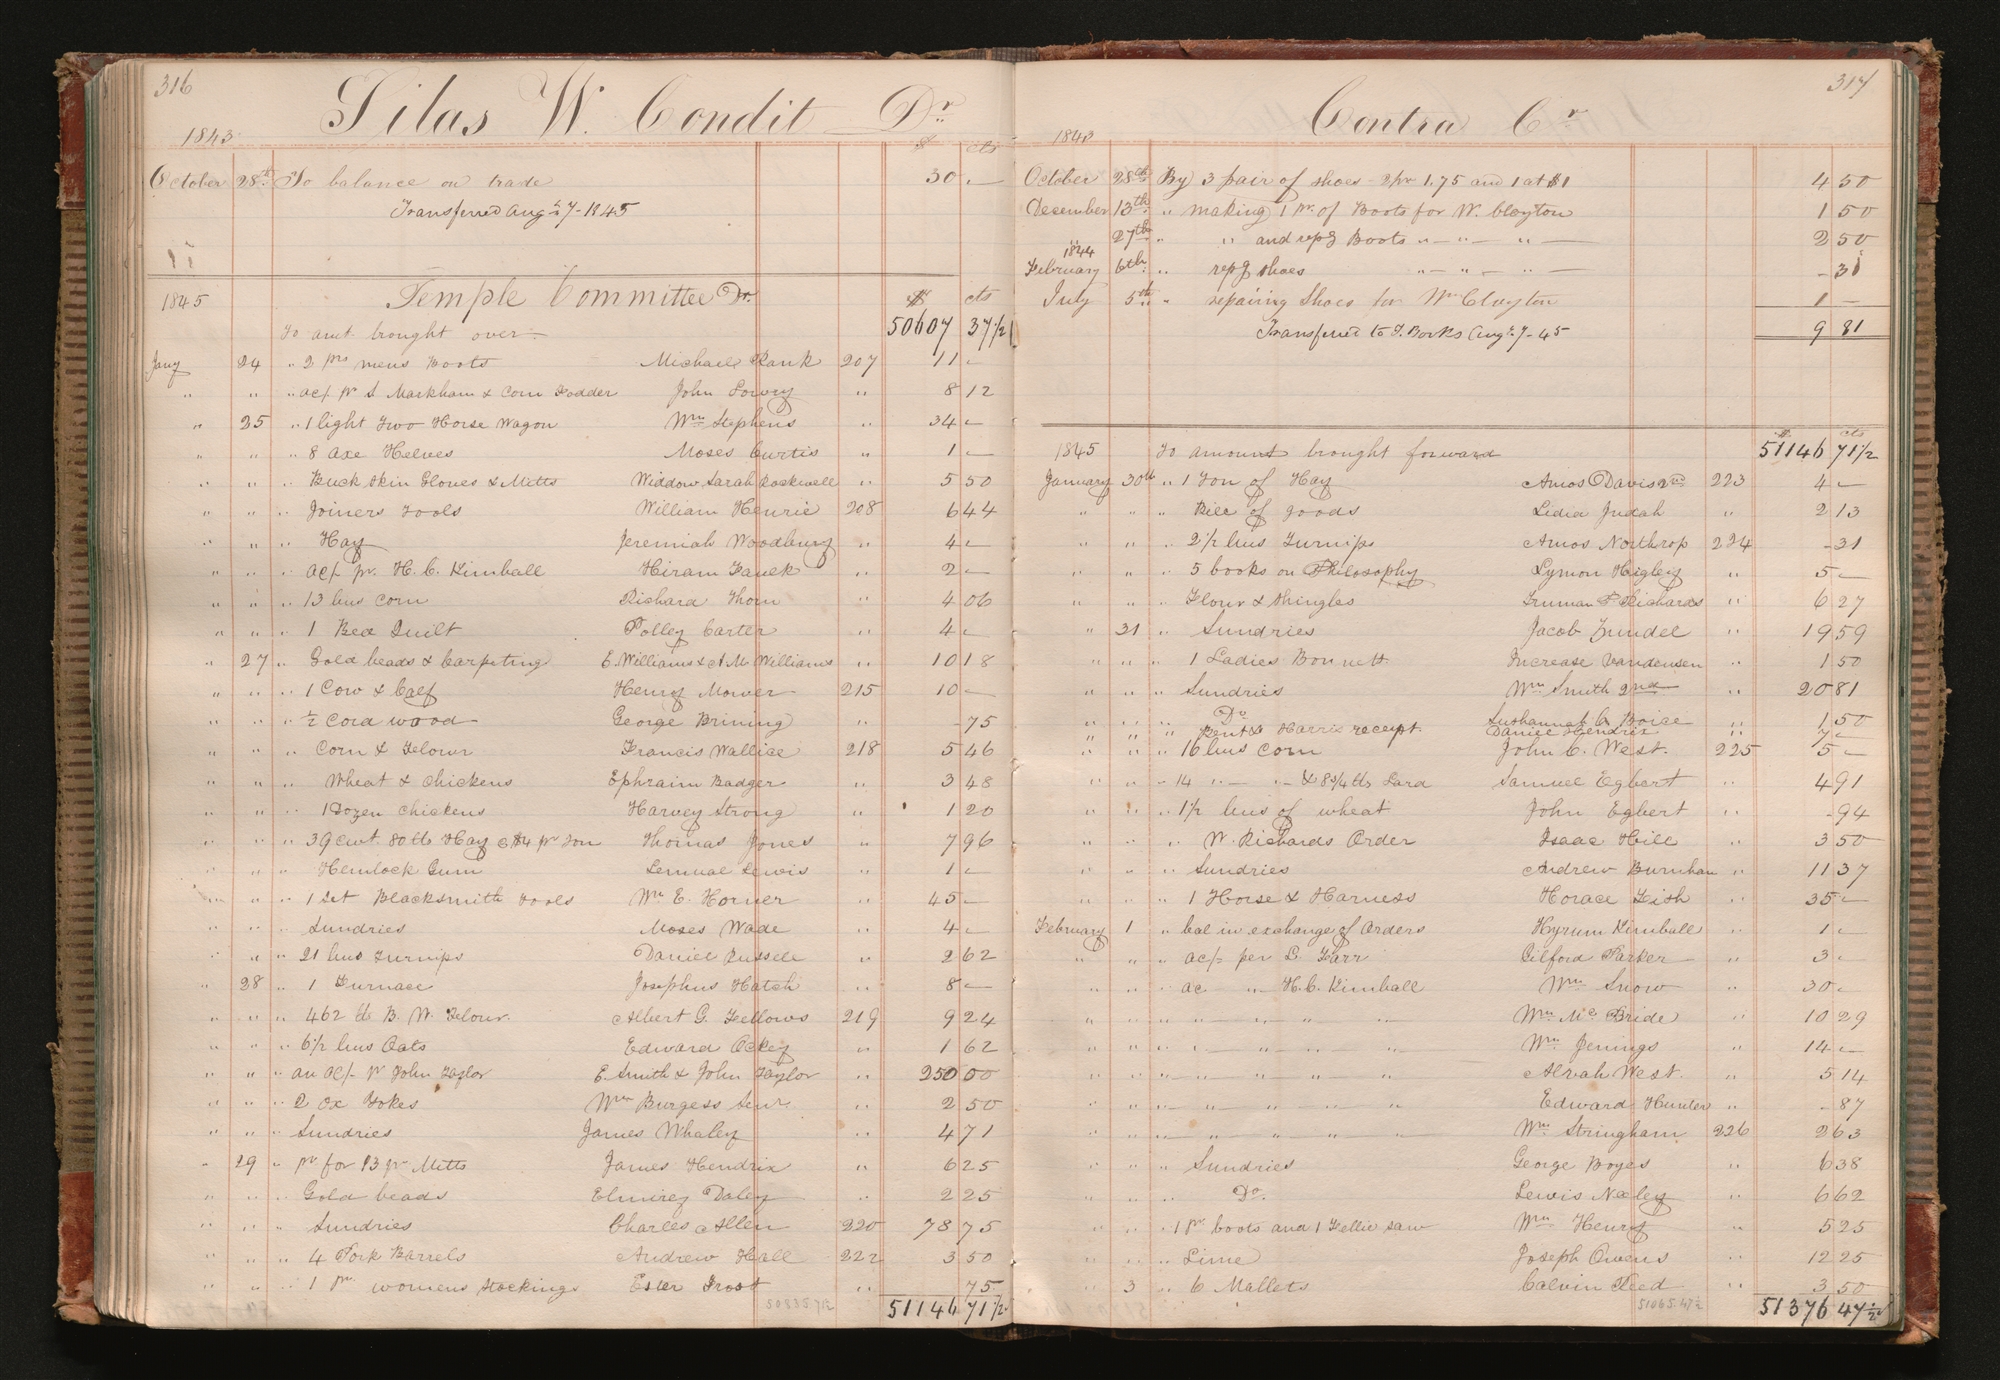 316
Silas W. Condit Dr
1843
$ cts
October 28th To balance on trade 30 —
Transferred Aug 7-1845
1845 Temple Committee Dr. $ cts
To amt brought over — 50607 37 1/2
Jany 24 " 2 prs mens Boots Michael Rank 207 11 —
" " " ac/. pr S Markham & Corn Fodder John Lowry " 8 12
" 25 " 1 light Two Horse Wagon Wm Stephens " 34 —
" " " 8 Axe Helves Moses Curtis " 1 —
" " " Buck Skin Gloves & Mitts Widdow Sarah Rockwell " 5 50
" " " Joiners Tools William Henrie 208 6 44
" " " Hay Jeremiah Woodbury " 4 —
" " " ac/- pr. H. C. Kimball Hiram " 2 —
" " " 13 bus corn Richard Thorn " 4 06
" " " 1 Bed Quilt Polley Carter " 4 —
" 27 " Gold beads & Carpeting E. Williams & A. M. Williams " 10 18
" " " 1 Cow & Calf Henry Mower 215 10 —
" " " 1/2 Cord wood George Brining " -75
" " " Corn & Flour Francis Wallice 218 5 46
" " " Wheat & Chickens Ephraim Badger " 3 48
" " " 1 Dozen chickens Harvey Strong " 1 20
" " " 39 cwt. 80 lb Hay @ $4 pr Ton Thomas Jones " 7 96
" " " Hemlock Gum Lemuel Lewis " 1 —
" " " 1 Set Blacksmith Tools Wm E. Horner " 45 —
" " " Sundries Moses Wade " 4 —
" " " 21 bus Turnips Daniel Russell " 2 62
" 28 " 1 Furnace Josephus Hatch " 8 —
" " " 462 lb B. W. Flour. Albert G. Fellows 219 9 24
" " " 6 1/2 bus Oats Edward Ockey " 1 62
" " " an ac/- pr John Taylor E. Smith & John Taylor " 250 00
" " " 2 Ox Yokes Wm Burgess Senr. " 2 50
" " " Sundries James Whaley " 4 71
" 29 " pr for 13 pr Mitts James Hendrix " 6 25
" " " Gold beads Elmirey Daley " 2 25
" " " Sundries Charles Allen 220 78 75
" " " 4 Pork Barrels Andrew Hall 222 3 50
" " " 1 pr. womens Stockings Ester Frost " 75
50835 71 1/2 51146 71 1/2
317
Contra Cr
1843
October 28th By 3 pair of shoes - 2 pr 1.75 and 1 at $1 4 50
December 13th " making 1 pr. of Boots for W. Clayton 1 50
27th " " and repg Boots " — " — " — 2 50
1844
February 6th " repg shoes " — " — " — - 31
July 5th " repairing Shoes for Wm Clayton 1 —
Transferred to J. Books Aug 7-45 9 81
$ cts
1845 To amount brought forward 51146 71 1/2
January 30th " 1 Ton of Hay Amos Davis 223 4 —
" " " Bill of goods Lidia Judah " 2 13
" " " 2 1/2 bus Turnips Amos Northrop 224 -31
" " " 5 books on Philosophy Lymon Higley " 5 —
" " " Flour & Shingles Truman Richards " 6 27
" 31 " Sundries Jacob Zundel " 19 59
" " " 1 Ladies Bonnett Increase Vandeusen " 1 50
" " " Sundries Wm Smith 2nd " 20 81
" " " Do Sushannah C. Boice " 1 50
" " " Harris receipt. Daniel Hendrix " 7 —
" " " 10 bus corn John C. West. 225 5 —
" " " 14 " — " — & 8 3/4 lb Lard Samuel Egbert " 4 91
" " " 1 1/2 bus of wheat John Egbert " -94
" " " W. Richards Order Isaac Hill " 3 50
" " " Sundries Andrew Burnham " 11 37
" " " 1 Horse & Harness Horace Fish " 35 —
February 1 " bal in exchange of Orders Hyrum Kimball " 1 —
" " " ac/- per L. Farr Gilford Parker " 3 —
" " " ac " H. C. Kimball Wm Snow " 30 —
" " " " — " — " " Wm McBride " 10 29
" " " " — " — " — " Wm Jenings " 14 —
" " " " — " — " — " Alvah West. " 5 14
" " " " — " — " — " Edward Hunter " -87
" " " " — " — " — " Wm Stringham 226 2 63
" " " Sundries George Boyes " 6 38
" " " Do. Lewis Neeley " 6 62
" " " 1 pr. boots and 1 Fellie Saw Wm Henry " 5 25
" " " Lime Joseph Owens " 12 25
" 3 " 6 Mallets Calvin Reed " 3 50
51065.47 1/2 51376 47 1/2